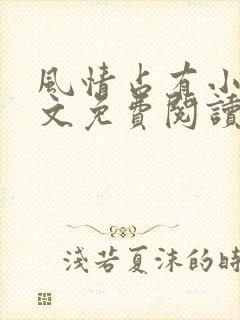 風情占有小
文免費閱讀
淺若夏沫的時